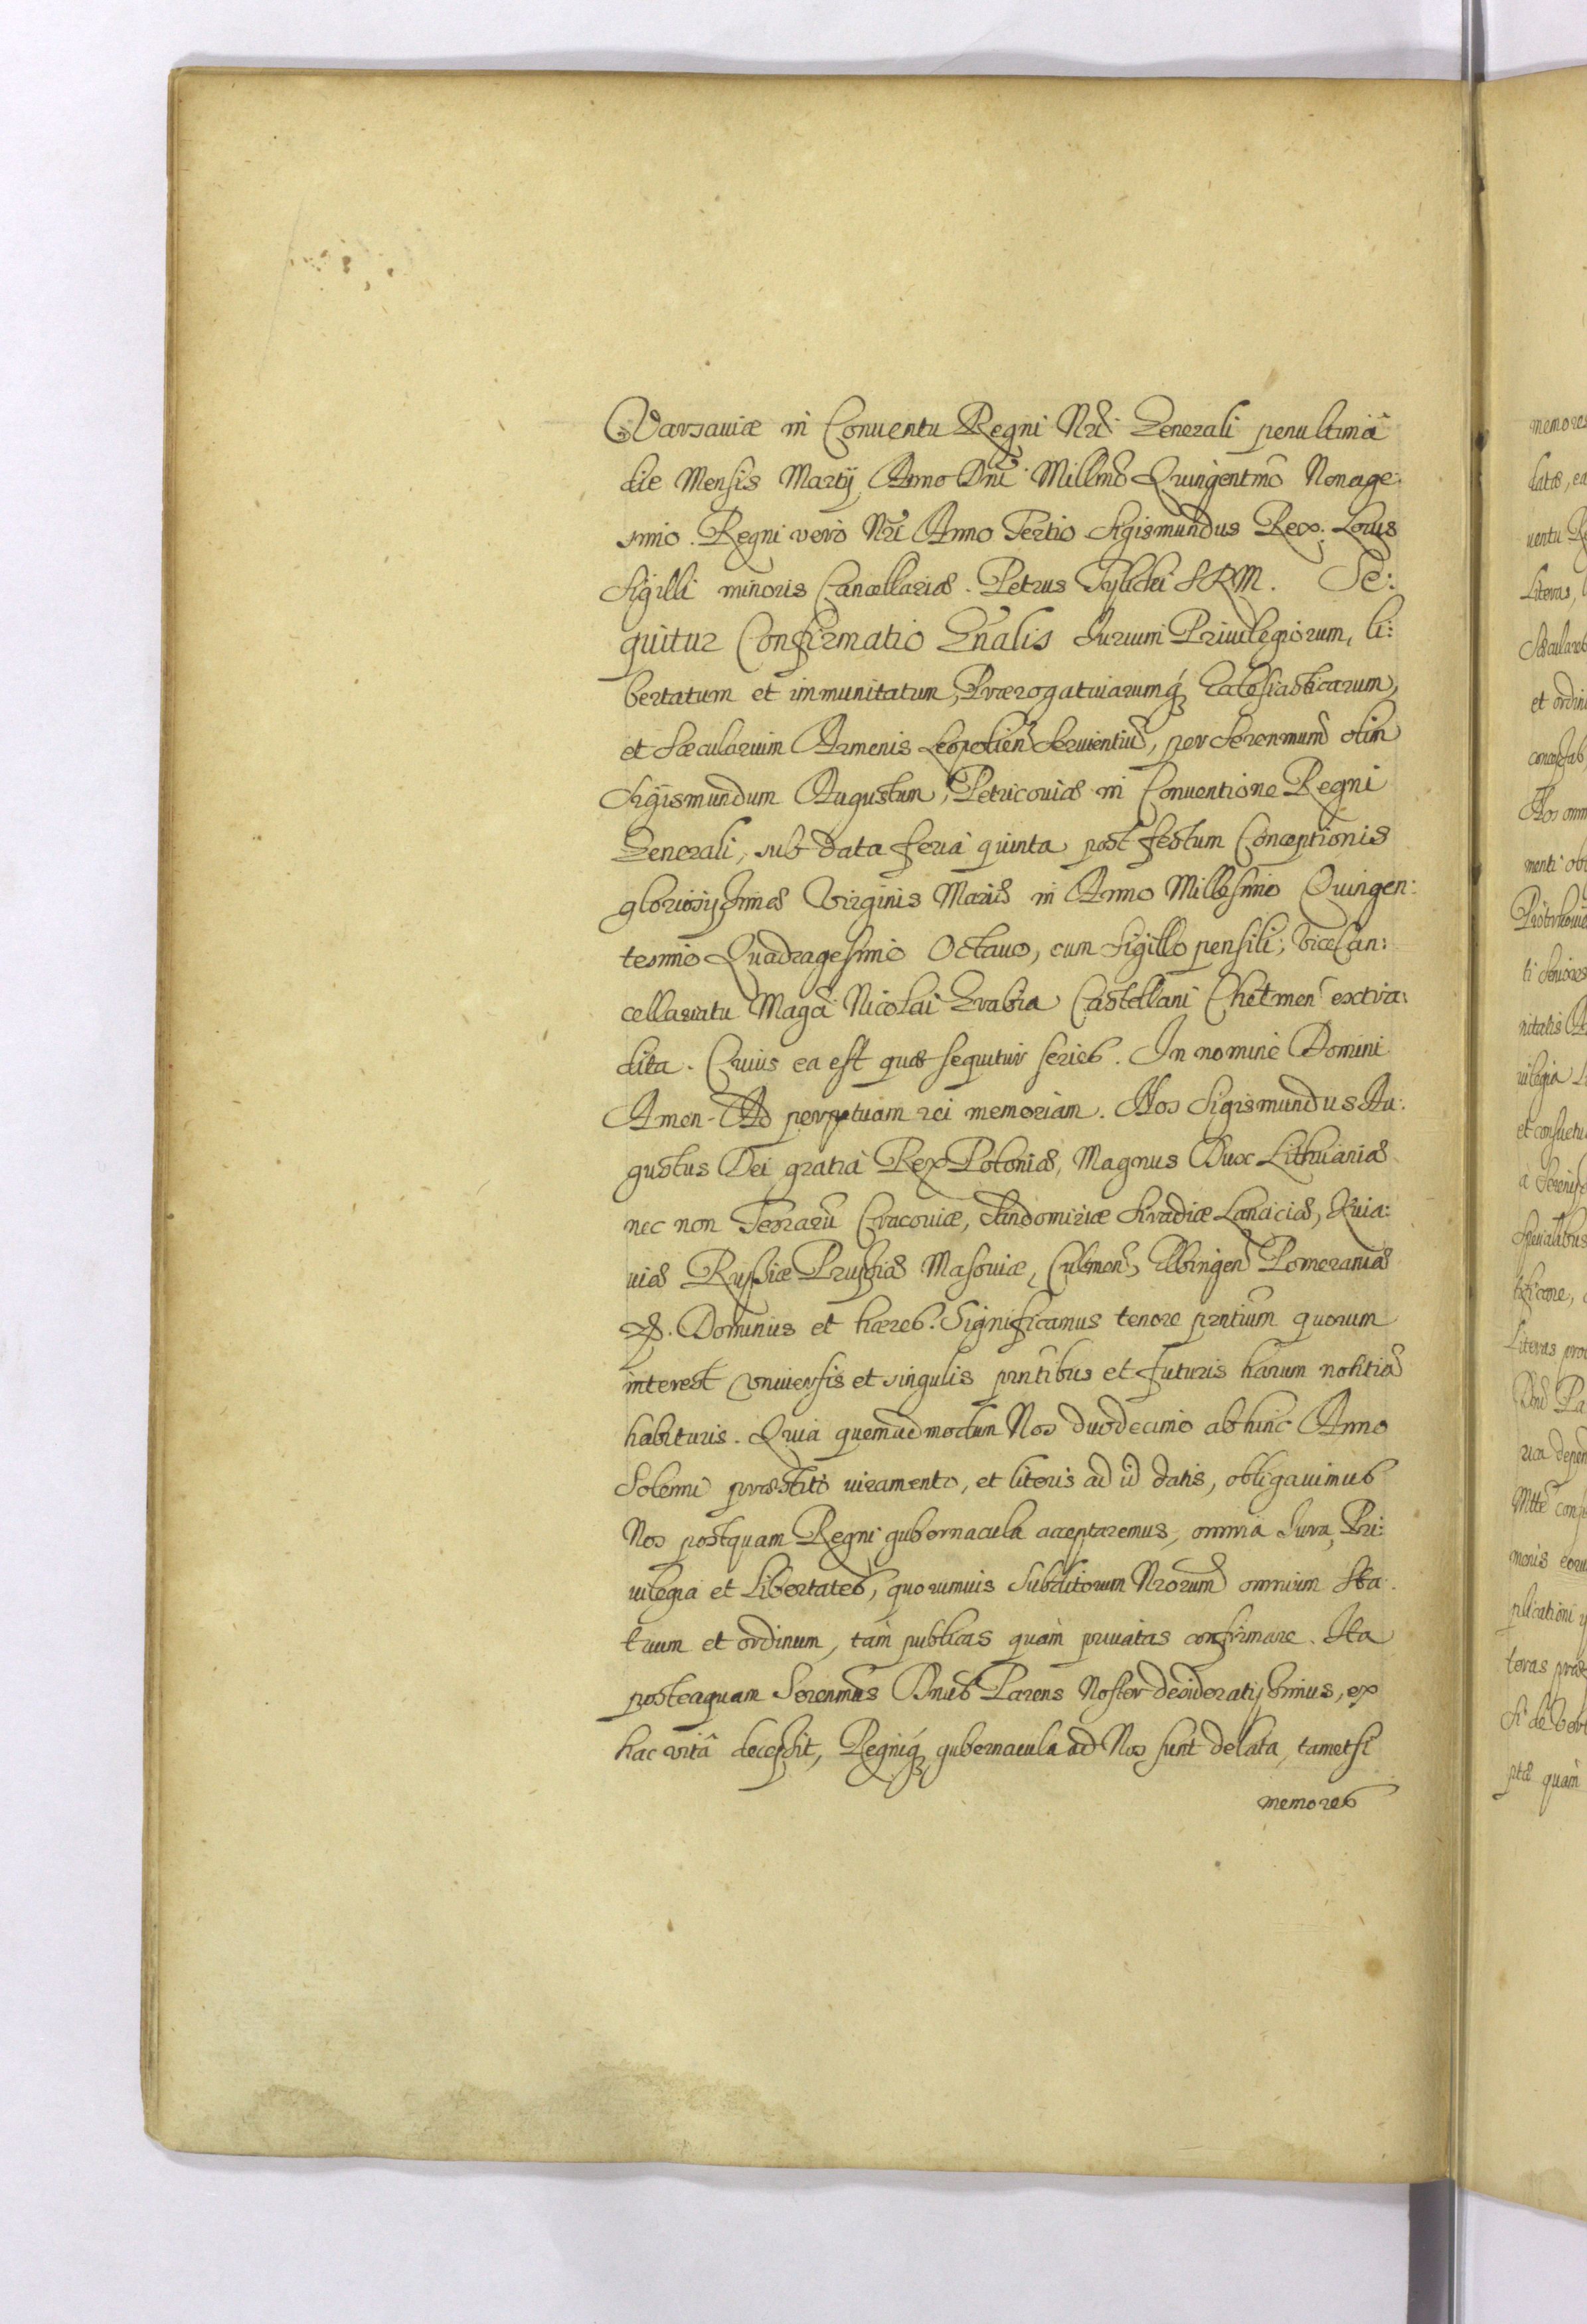 Varsauiæ in Conuentu Regni Nri Generali penultimâ
die Mensis Martij, Anno Dni Millmo Quingentmo Nonage:
simo. Regni vero Nri Anno Tertio Sigismundus Rex. Locus
Sigilli minoris Cancellariæ. Petrus Tylicki SRM. Se:
quitur Confirmatio Gnalis Iurium Priuilegiorum, li:
bertatum et immunitatum, Prærogatiuarumq́ Ecclesiasticarum,
et Sæcularium Armenis Leopolien Seruientiu, per Serenmum olim
Sigismundum Augustum, Petricouiæ in Conuentione Regni
Generali, sub data feria quinta post festum Conceptionis
gloriosissimæ Virginis Mariæ in Anno Millesimo Quingen:
tesimo Quadragesimo Octauo, cum Sigillo pensili, Vice Can:
cellariatu Magci Nicolai Grabia Castellani Chelmen extra:
dita. Cuius ea est quæ sequitur series. In nomine Domini
Amen. Ad perpetuam rei memoriam. Nos Sigismundus Au:
gustus Dei gratia Rex Poloniæ, Magnus Dux Lithuaniæ
nec non Terraru Cracouiæ, Sandomiriæ Siradiæ Lanciciæ, Cuia:
uiæ Russiæ Prussiæ Masouiæ, Culmen, Elbingen Pomeraniæ
&. Dominus et hæres. Significamus tenore prntium quorum
interest vniuersis et singulis prntibus et futuris harum notitia
habituris. Quia quemadmodum Nos duodecimo abhinc Anno
Solenni præstito iuramento, et literis ad id datis, obligauimus
Nos postquam Regni gubernacula acceptaremus, omnia Iura, Pri:
uilegia et Libertates, quorumuis Subditorum Nrorum omnium Sta:
tuum et ordinum, tam publicas quàm priuatas confirmare. Ita
posteaquam Serenmus Dnus Parens Noster desideratissimus, ex
hac vitâ decessit, Regniq́ gubernacula ad Nos sunt delata, tametsi
memores